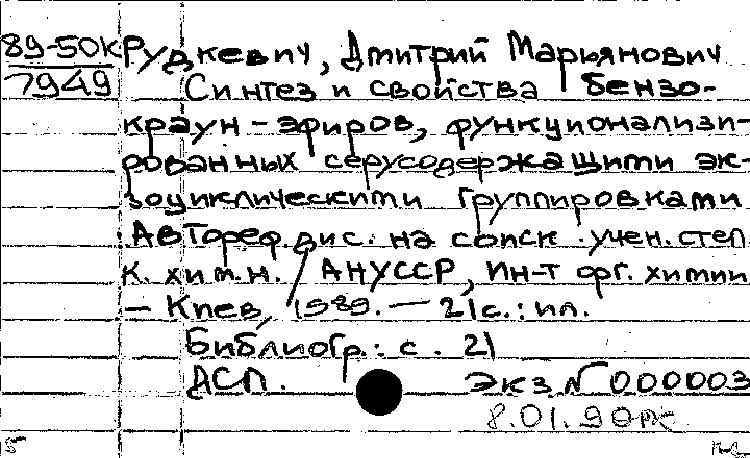 89-50к Рудкевич, Дмитрий Марьянович
7949 Синтез и свойства бензо-
краун-эфиров, функционализи-
рованных серусодержащими эк-
зоциклическими группировками
: Автореф. дис. на соиск. учен. степ.
к. хим. н. / АН УССР, Ин-т орг. химии
– Киев, 1989. – 21 с. : ил.
Библиогр.: с. 21
ДСП. Экз. № 000003
8.01.90